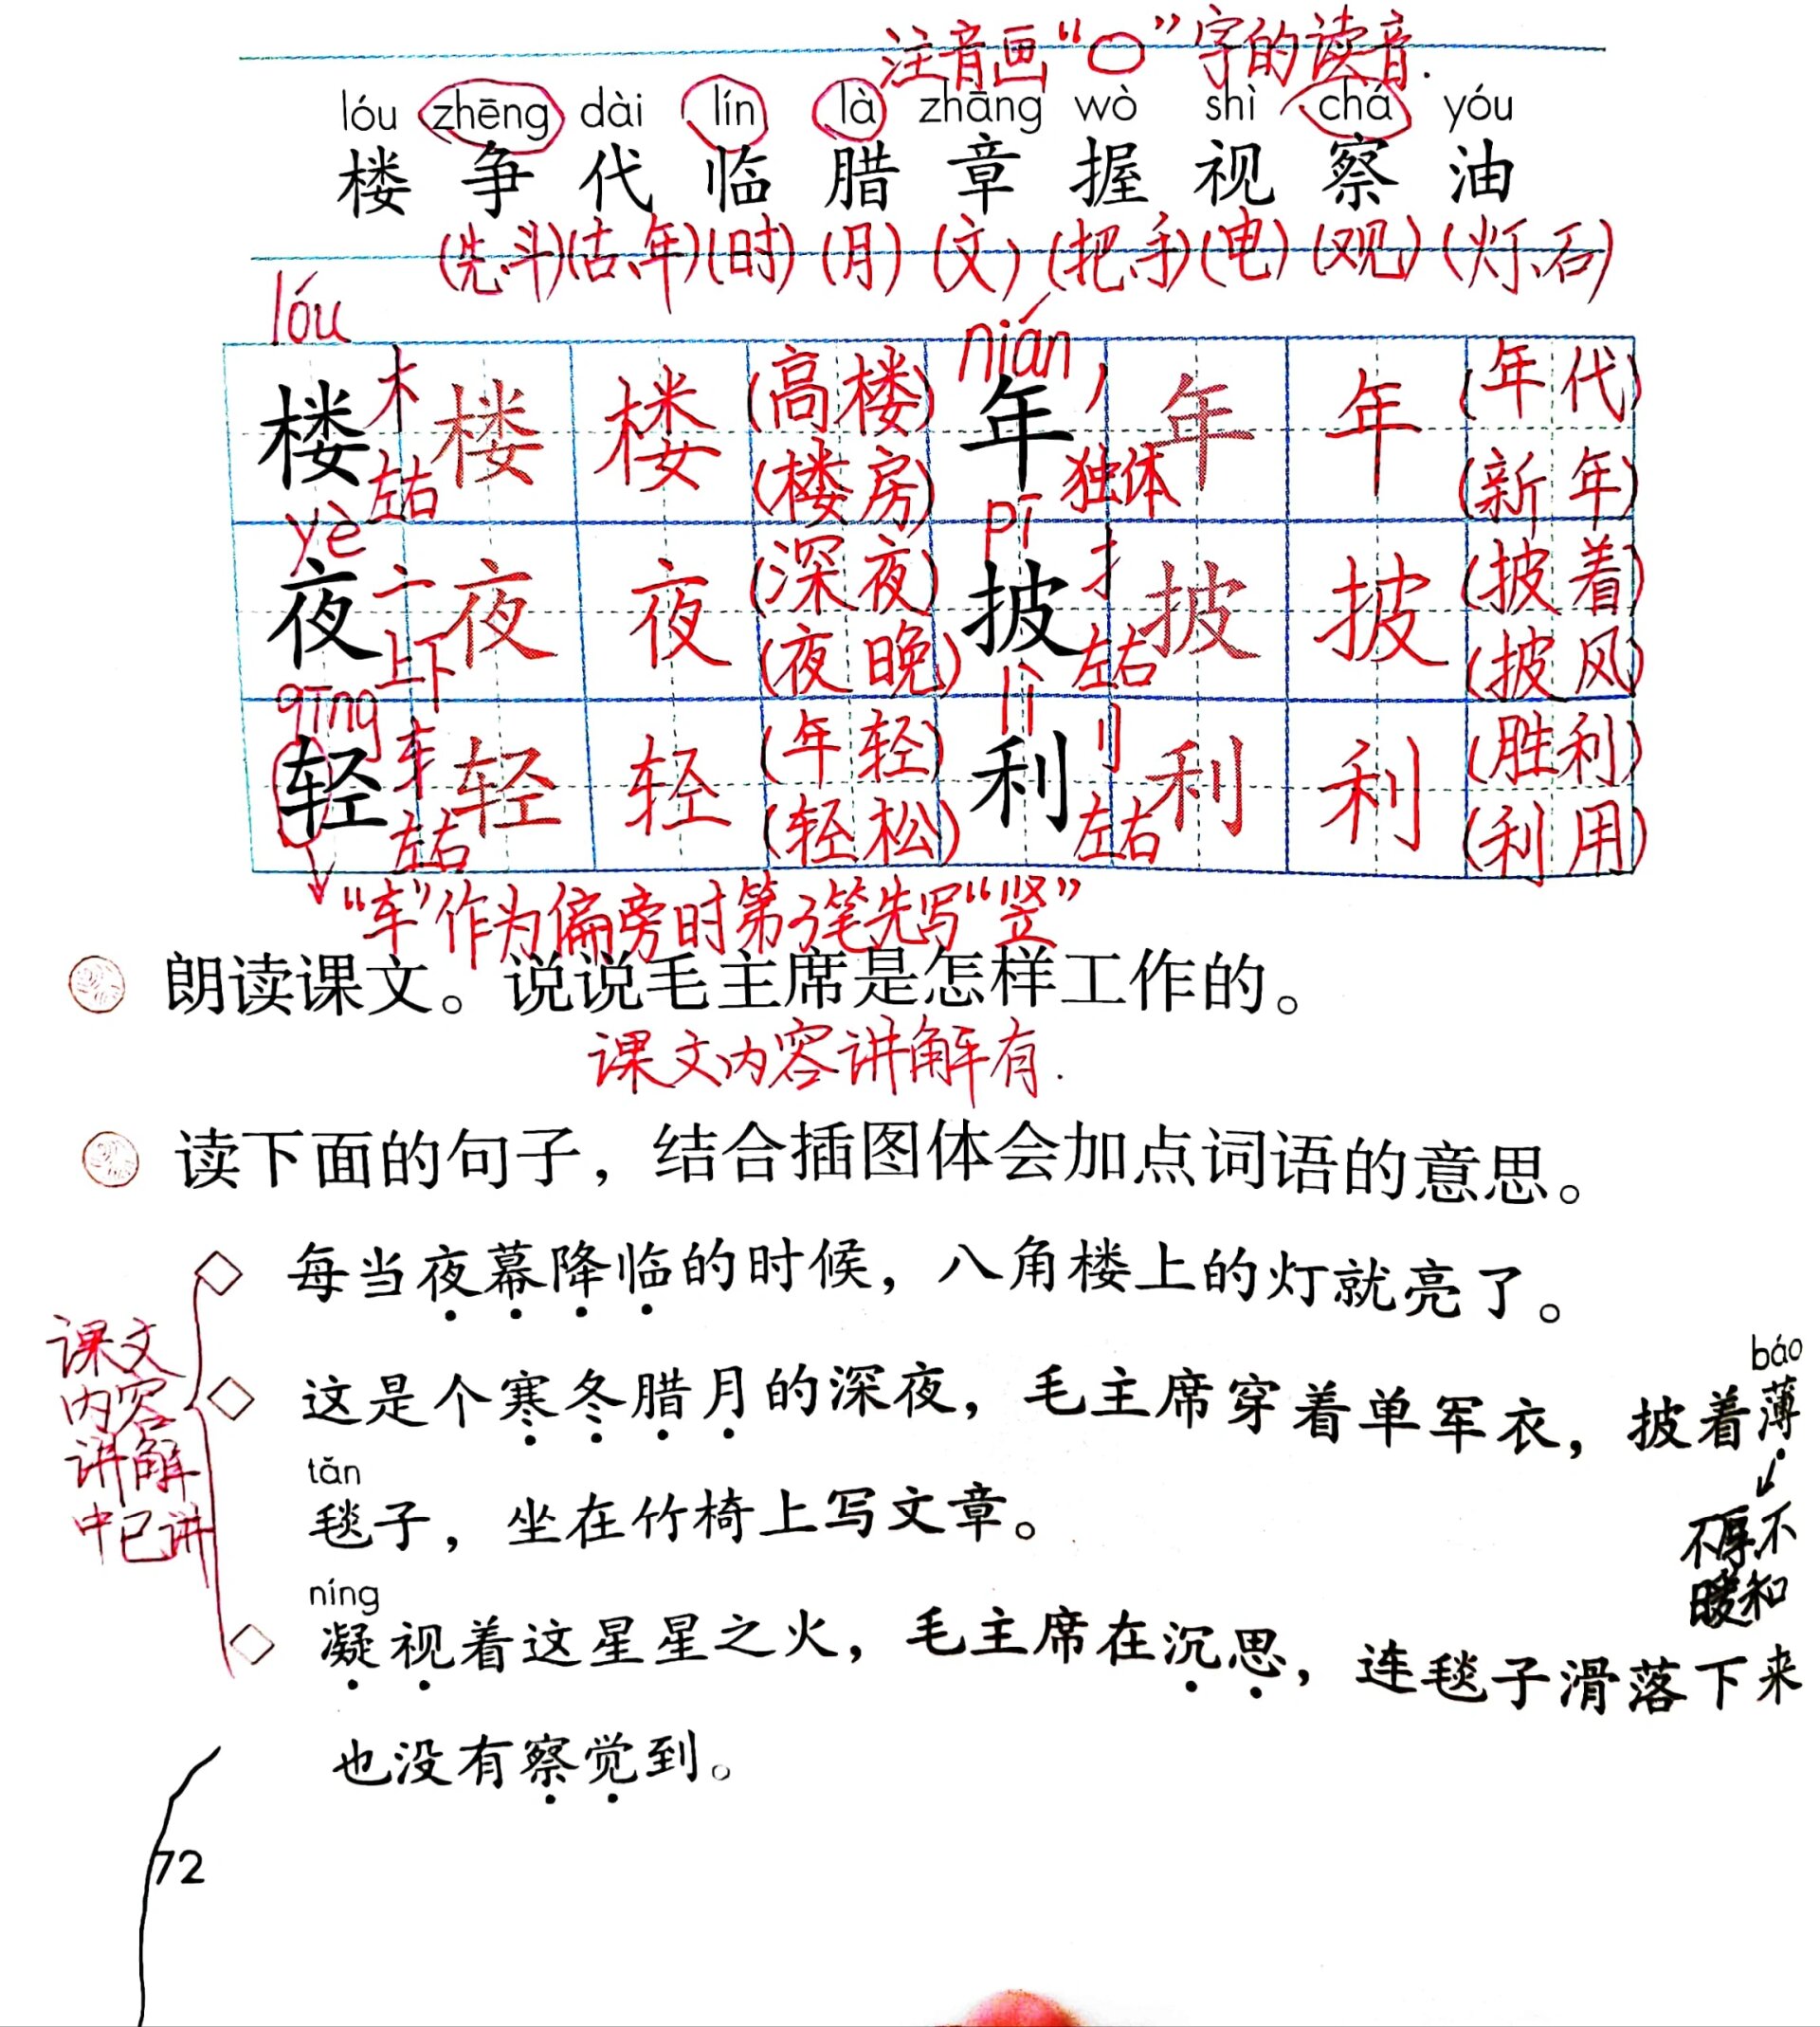 注音画“○”字的读音.
lóu zhēng dài lín là zhāng wò shì chá yóu
楼 争 代 临 腊 章 握 视 察 油
(先、斗)(古、年)(时)(月)(文)(把、手)(电)(观)(灯、石)
lóu nián
楼 木 左右 楼 楼 (高楼) (楼房) 年 丿 独体 年 年 (年代) (新年)
yè pī
夜 亠 上下 夜 夜 (深夜) (夜晚) 披 扌 左右 披 披 (披着) (披风)
qīng lì
轻 车 左右 轻 轻 (年轻) (轻松) 利 刂 左右 利 利 (胜利) (利用)
“车”作为偏旁时第3笔先写“竖”
朗读课文。说说毛主席是怎样工作的。
课文内容讲解有.
读下面的句子，结合插图体会加点词语的意思。
课文
内容
讲解
中已讲
◇ 每当夜幕降临的时候，八角楼上的灯就亮了。
báo
◇ 这是个寒冬腊月的深夜，毛主席穿着单军衣，披着薄
tǎn
毯子，坐在竹椅上写文章。
不厚、不
暖和
níng
◇ 凝视着这星星之火，毛主席在沉思，连毯子滑落下来
也没有察觉到。
72